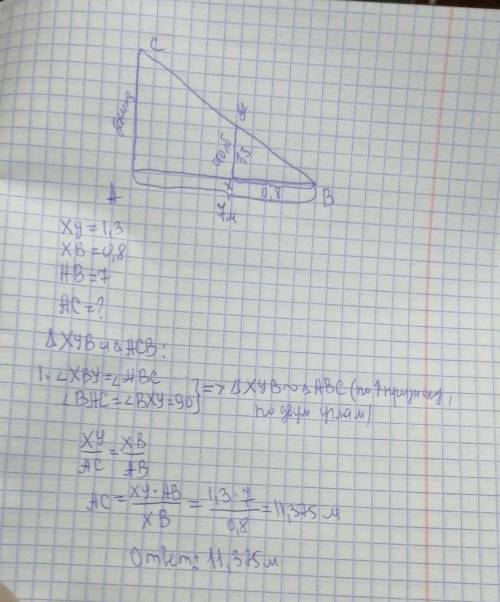 C
У
1,3
A
X
0,8
B
7м
XУ=1,3
XB=0,8
AB=7
AC=?
ΔXУB и ΔACB:
1. ∠XBУ=∠ABC
∠BAC=∠BXУ=90 } => ΔXУB~ΔABC (по 1 признаку,
по двум углам)
XУ/AC = XB/AB
AC = XУ·AB/XB = 1,3·7/0,8 = 11,375 м
Ответ: 11,375м